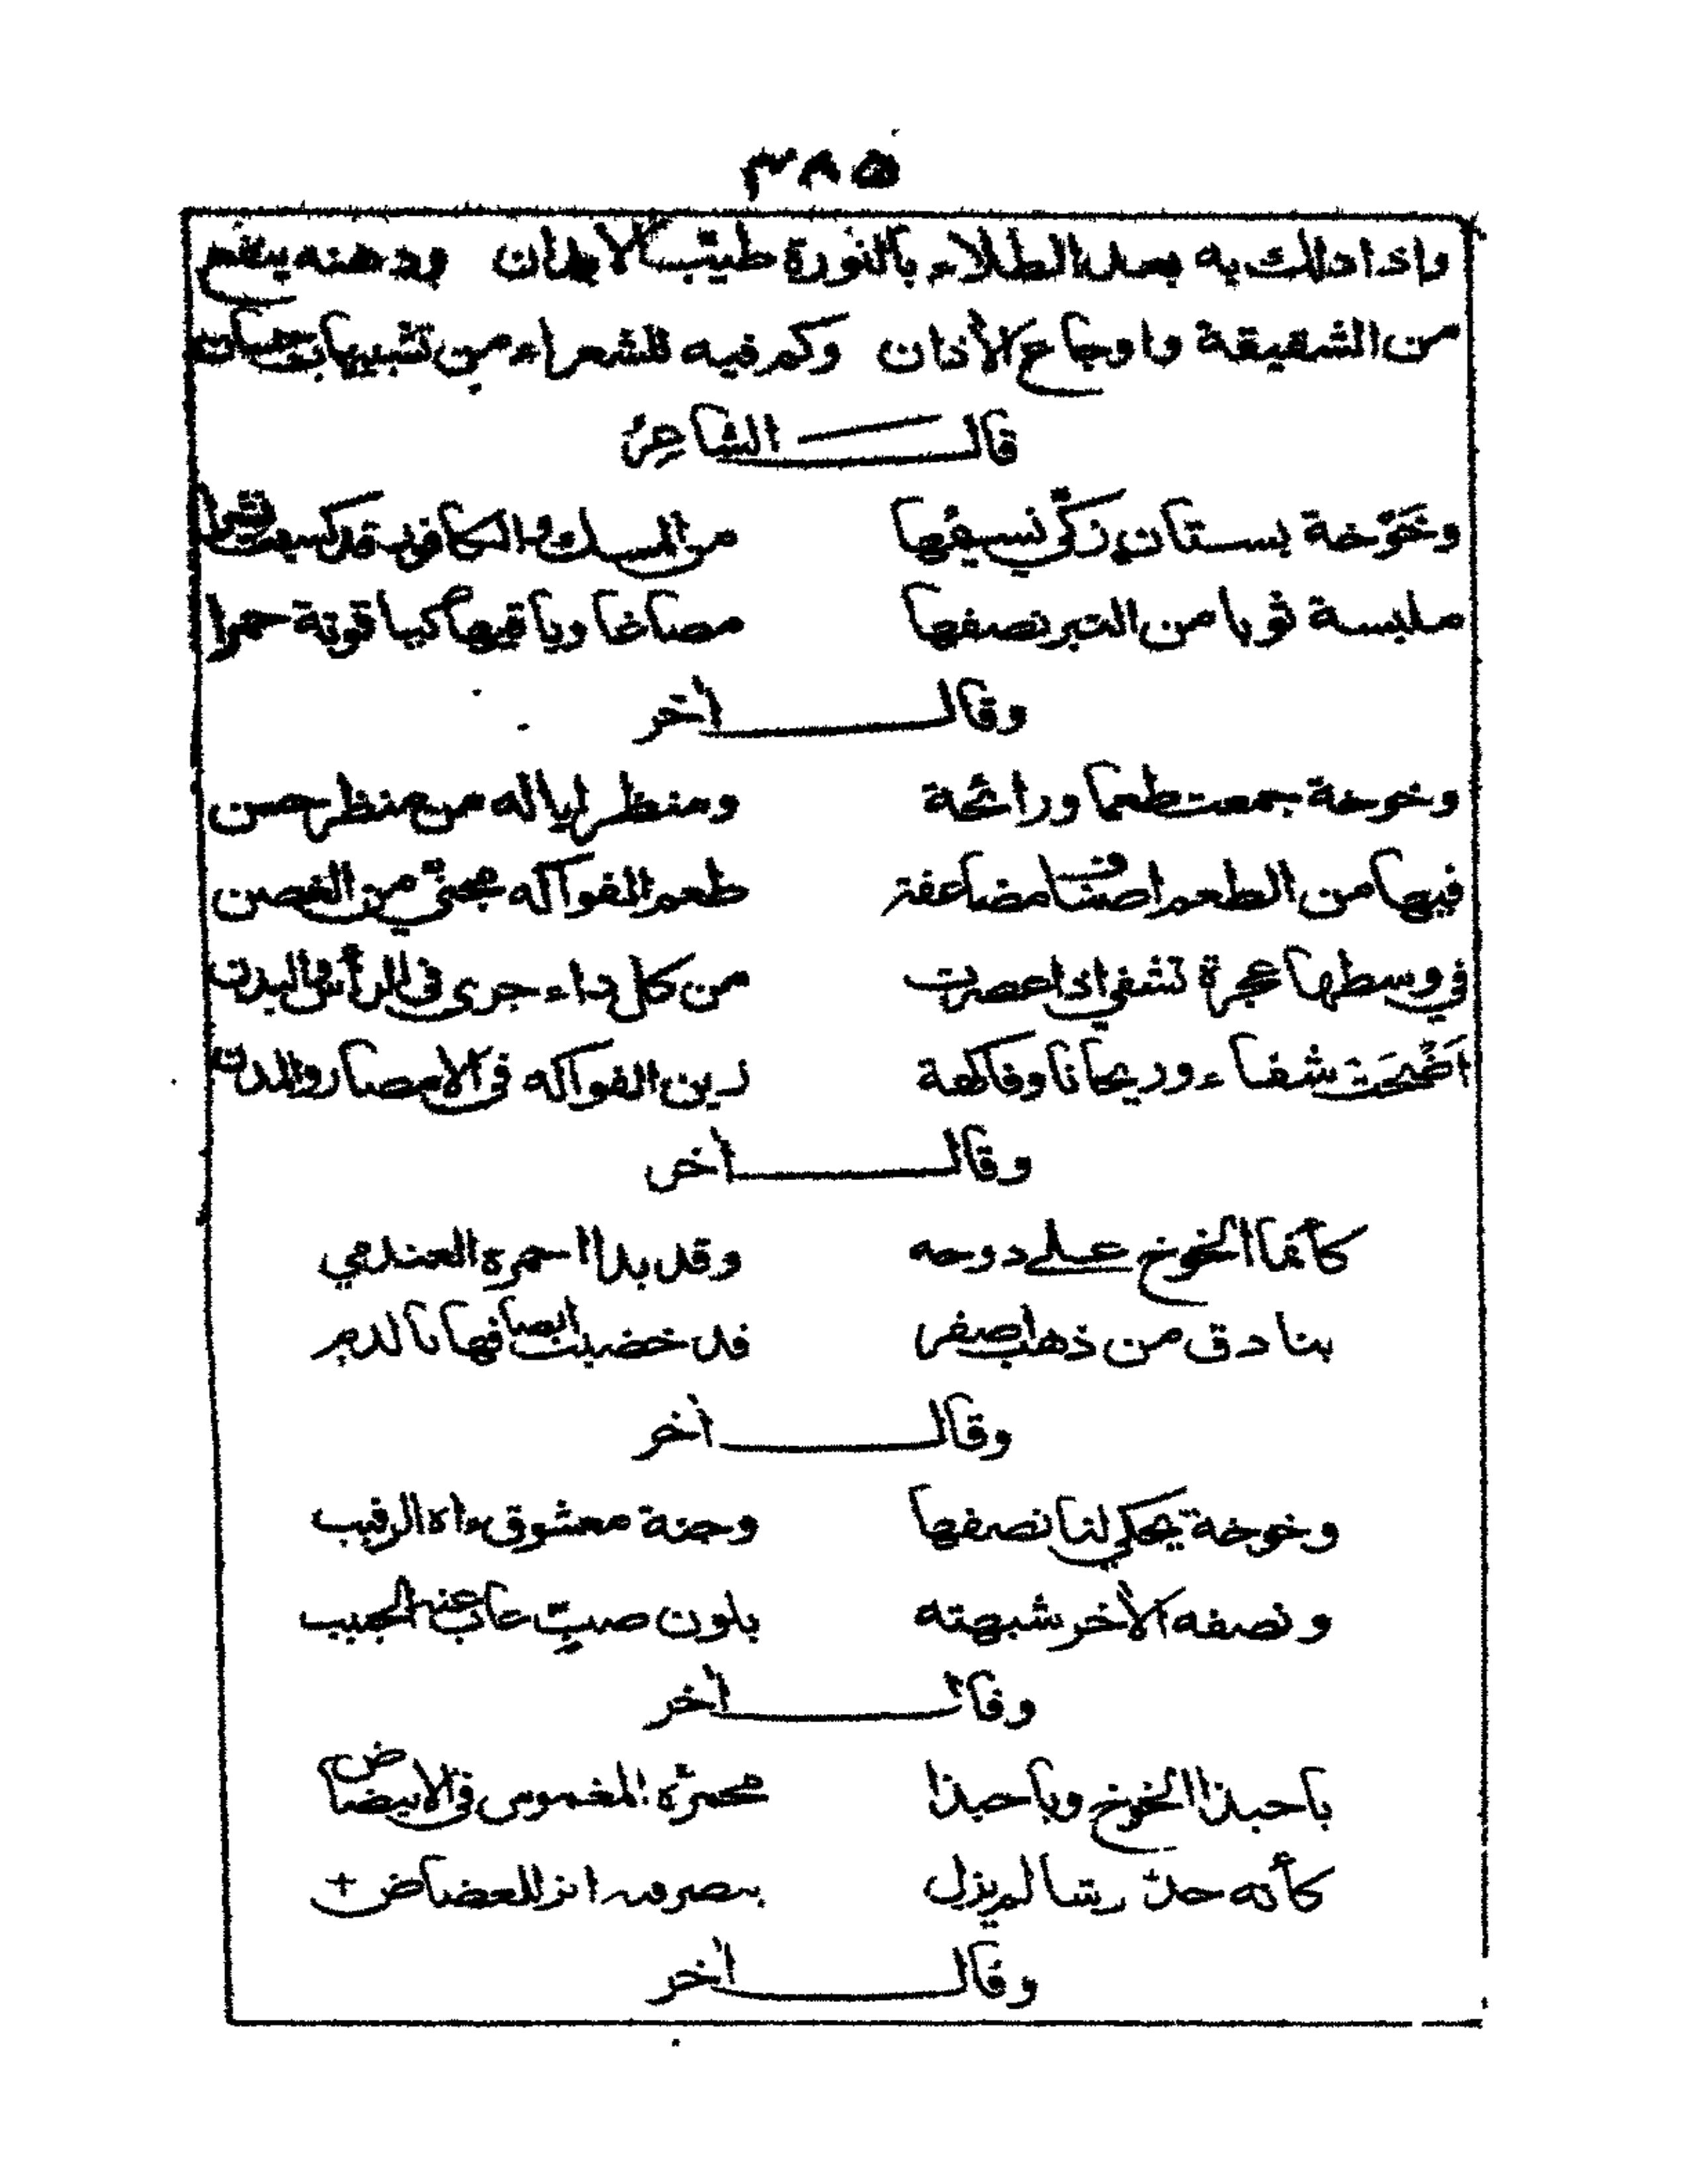 ٣٨٥
واذا دلك به بعد الطلاء بالنورة طيّب الابدان ودهنه ينفع
من الشقيقة واوجاع الأذان وكم فيه للشعراء من تشبيهات حسان
قال الشاعرُ
وخَوْخة بستان زكّي نسيمُها من المسك والكافور قد كسبت نشرا
ملبسة ثوبا من التبر نصفها مصاغا وباقيها كياقوتة حمرا
وقال آخر
وخوخة جمعت طعما ورائحة ومنظرا ياله من منظر حسن
فيها من الطعم اصنافا مضاعفة طعم الفواكه مجنيّ من الغصن
في وسطها عجرة تشفي اذا عصرت من كل داء جرى في الرأس والبدن
اضْحَت شفاء وريحانا وفاكهة زين الفواكه في الامصار والمدن
وقال آخر
كأنما الخوخ على دوحه وقد بدا احمره العندمي
بنادق من ذهب اصفر قد خضبت انصافها بالدم
وقال آخر
وخوخة يحكي لنا نصفها وجنة معشوق راه الرقيب
ونصفه الآخر شبهته بلون صبّ غاب عنه الحبيب
وقال آخر
يا حبذا الخوخ ويا حبذا محمرّه المغموس في الابيضاض
كأنه خدّ رشا لم يزل للعضاض
وقال آخر